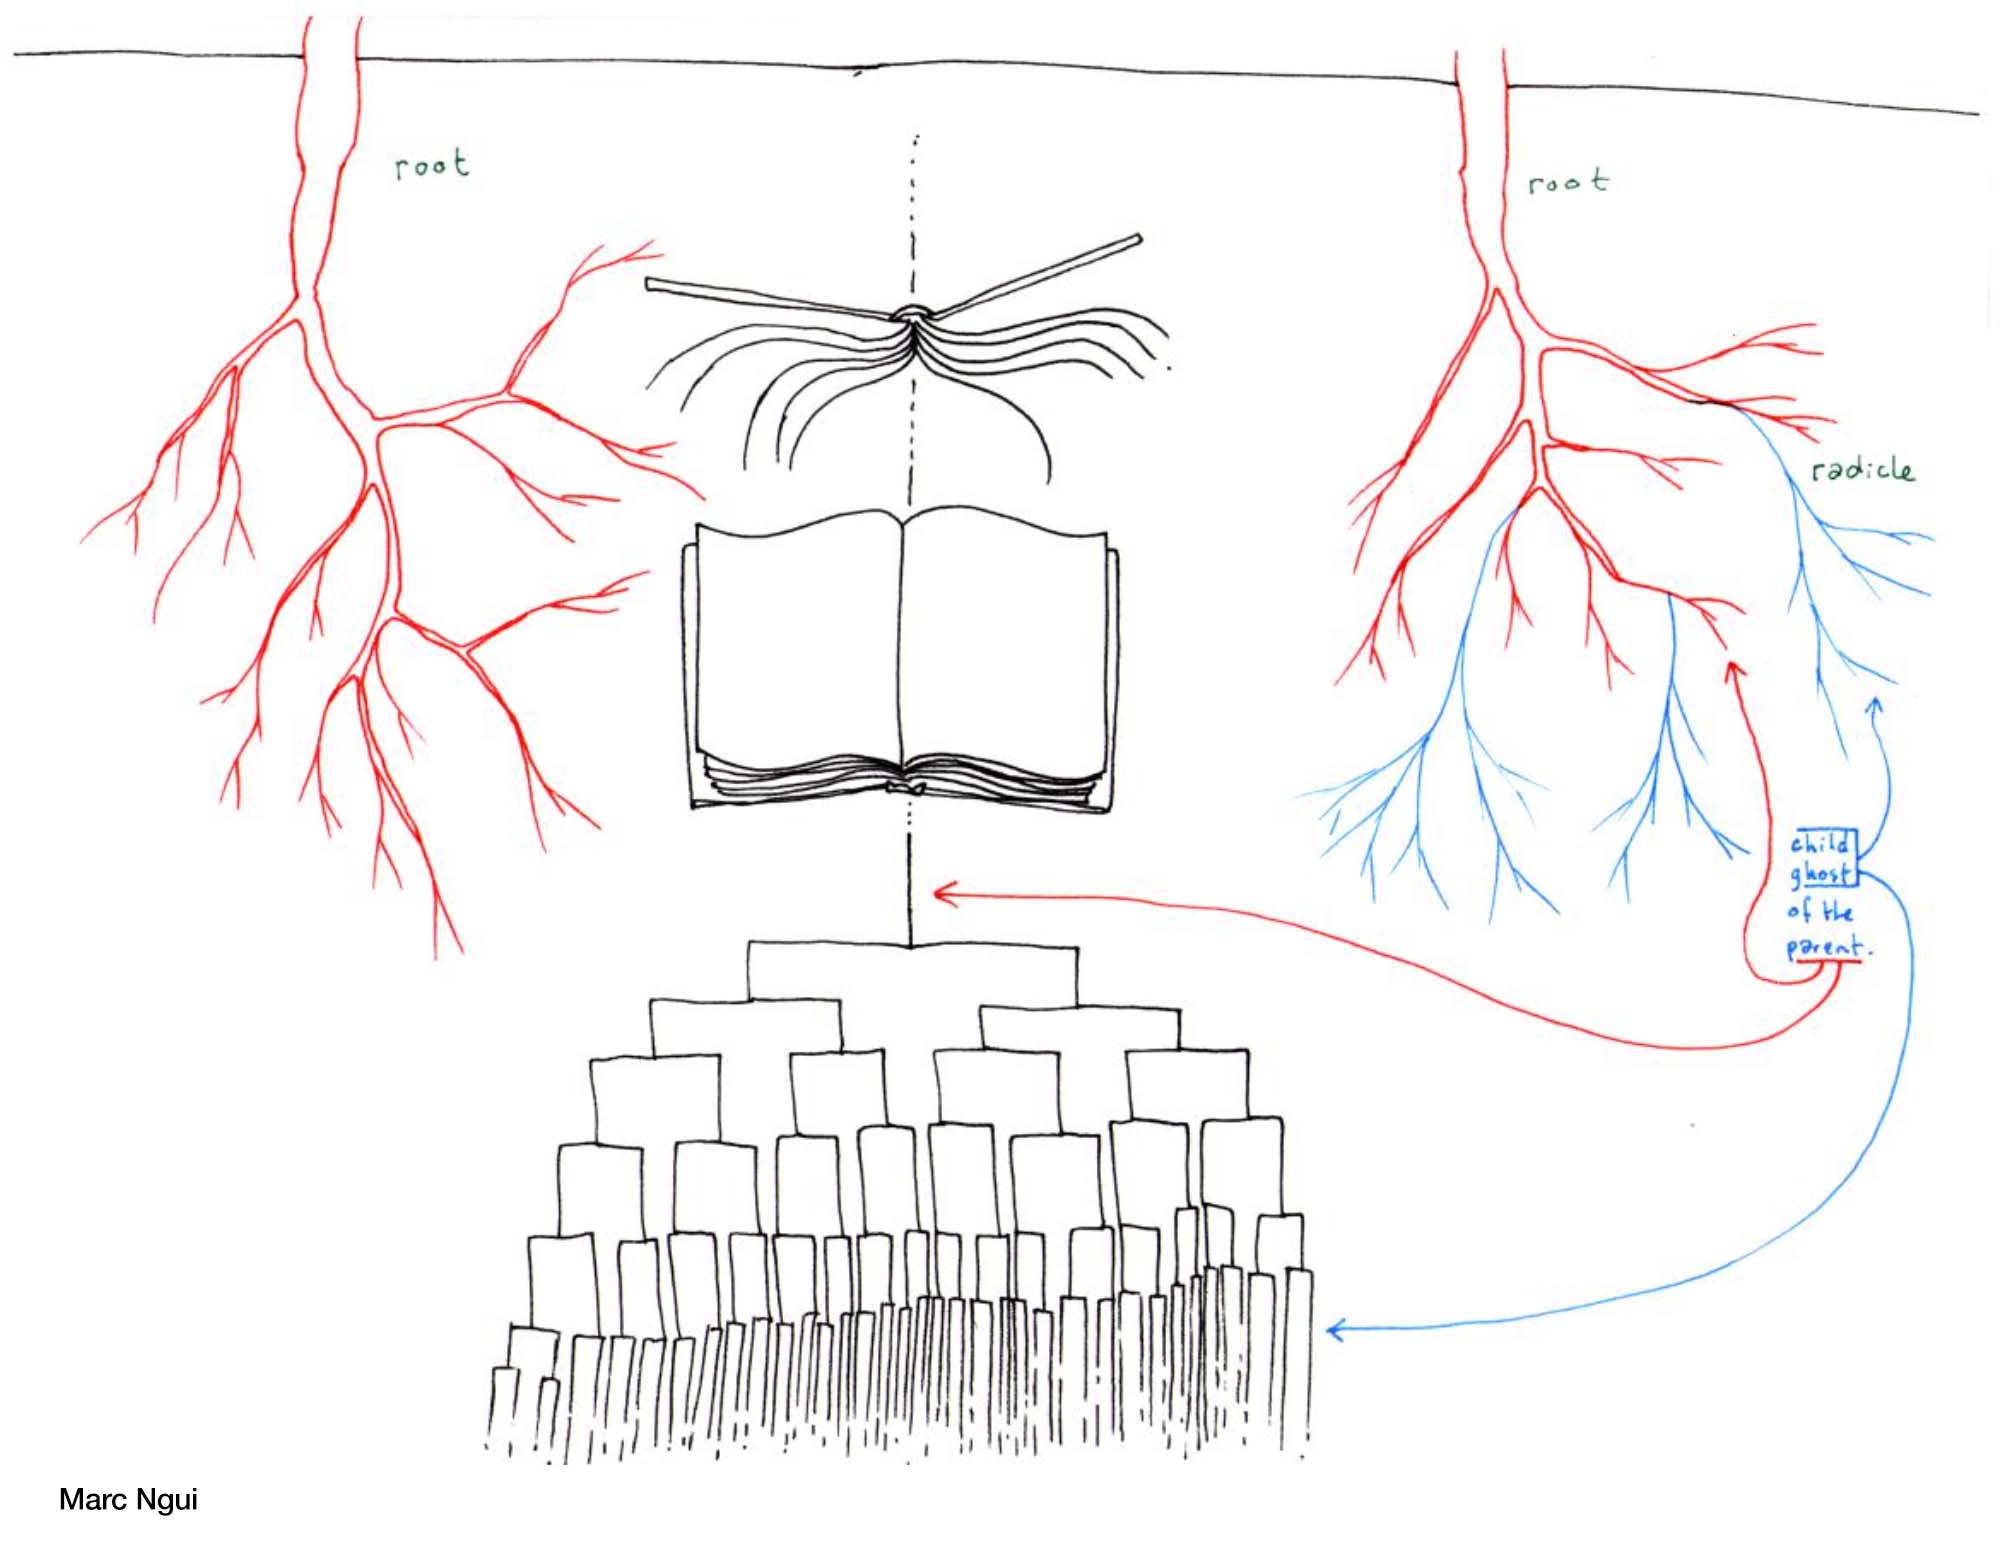 root
root
radicle
child
ghost
of the
parent.
Marc Ngui